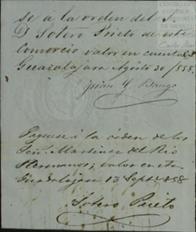 se á la orden del S.
D Sotero Prieto de este
Comercio valor en cuenta
Guadalajara Agosto 30/858.
Juan Y
Paguese á la órden de los
Sres. Martinez del Rio
Hermanos, valor en cta
Guadalajara 13 Septe 858
Sotero Prieto